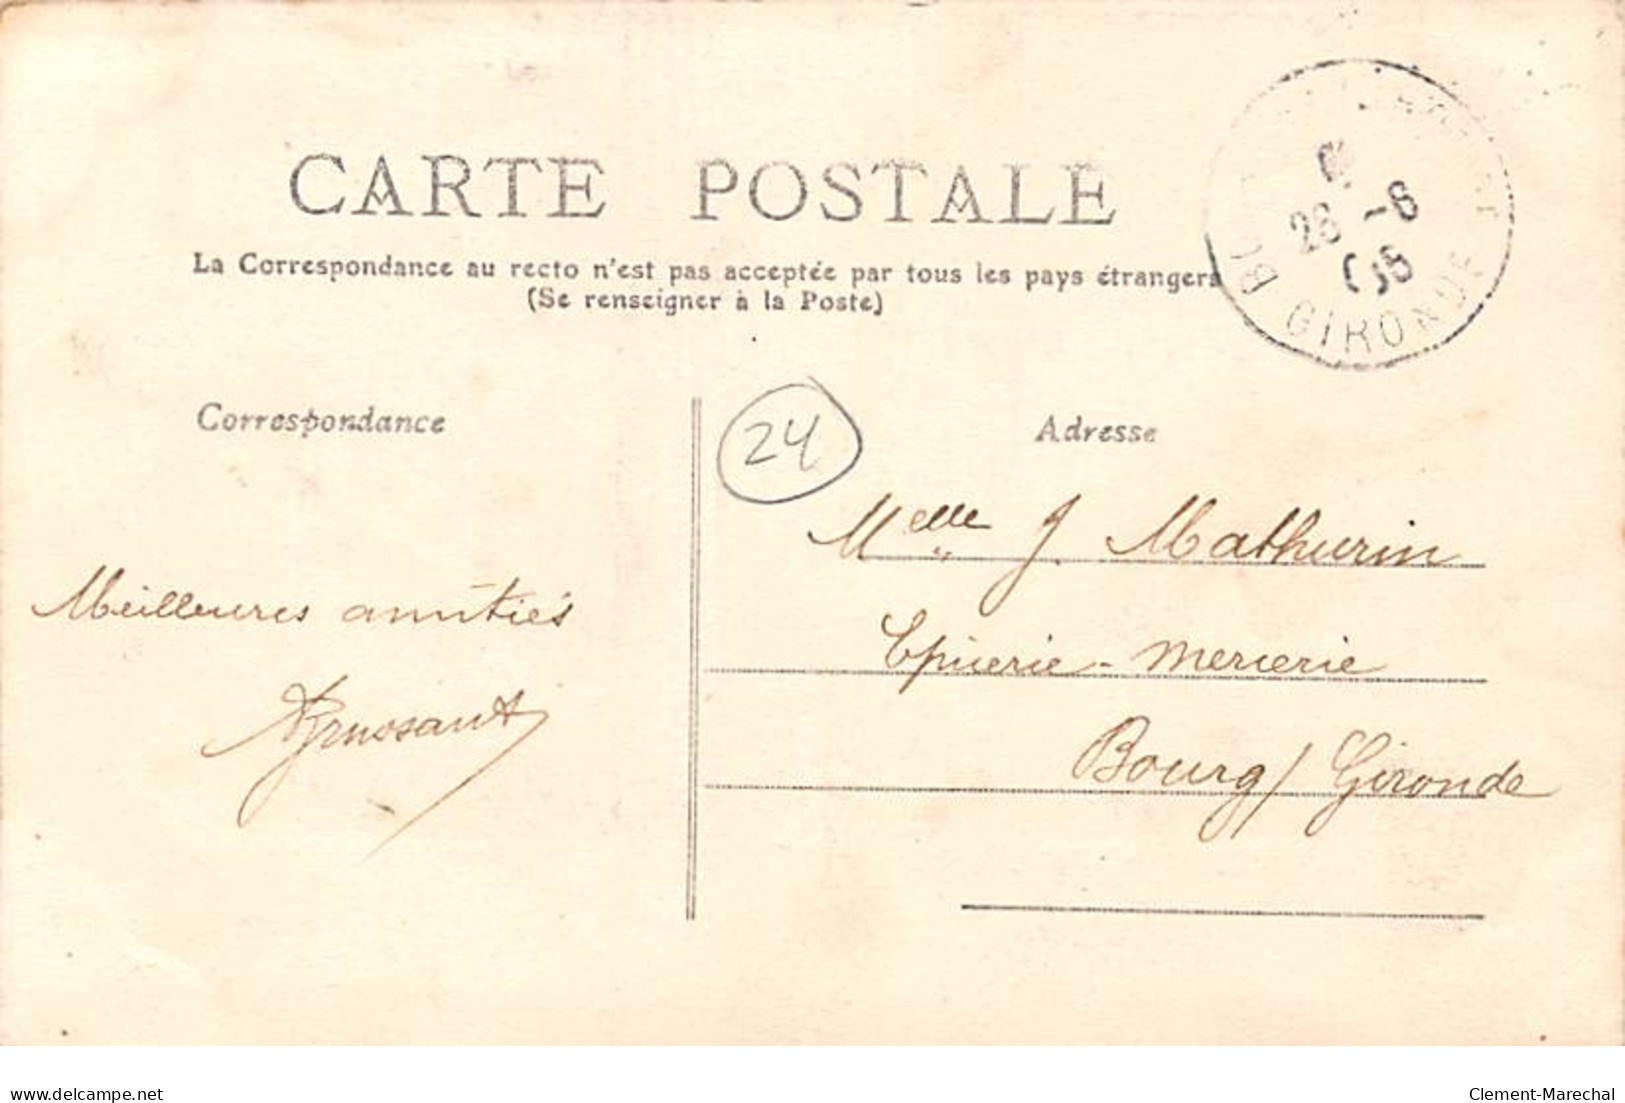 CARTE POSTALE
La Correspondance au recto n'est pas acceptée par tous les pays étrangers
(Se renseigner à la Poste)
28 -6
05
GIRONDE
Correspondance
24
Adresse
Meilleures amitiés
Melle J. Mathurin
Epicerie - mercerie
Bourg / Gironde
www.delcampe.net
Clement-Marechal